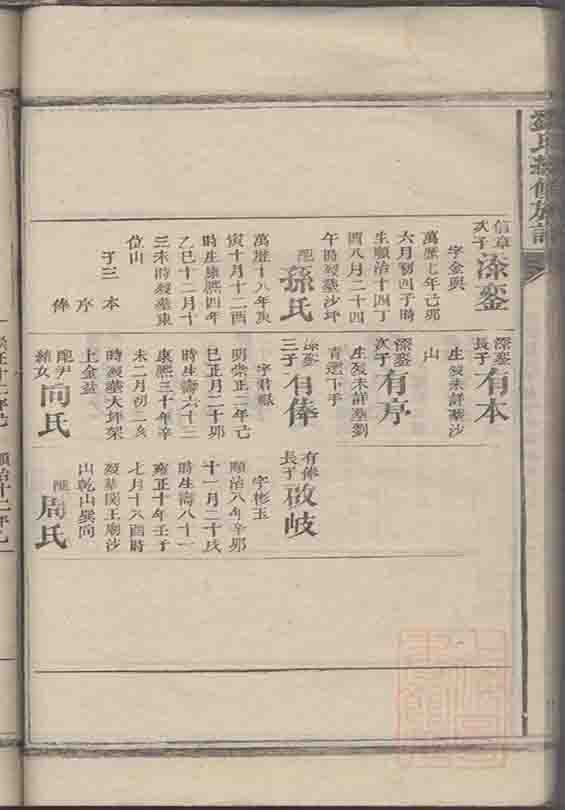 氏續修族譜
信章
次子
深鑾
字金與
萬歷七年己卯
六月初四子時
生順治十四丁
酉八月二十四
午時歿葬沙坪
配
孫氏
萬歷十八年庚
寅十月十二酉
時生康熙四年
乙巳十二月十
三未時歿葬東
位山
子三 本
序
俸
深鑾
長子
有本
生歿未詳葬沙
山
深鑾
次子
有序
生歿未詳葬劉
青選下手
深鑾
三子
有俸
字君祿
明崇正二年己
巳正月二十卯
時生壽六十三
康熙三十年辛
未二月初二亥
時歿葬大坪架
上金盆
配尹
緒女
向氏
有俸
長子
啟岐
字彬玉
順治八年辛卯
十一月二十戌
時生壽八十一
雍正十年壬子
七月十六酉時
歿葬閔王廟沙
山乾山巽向
配
周氏